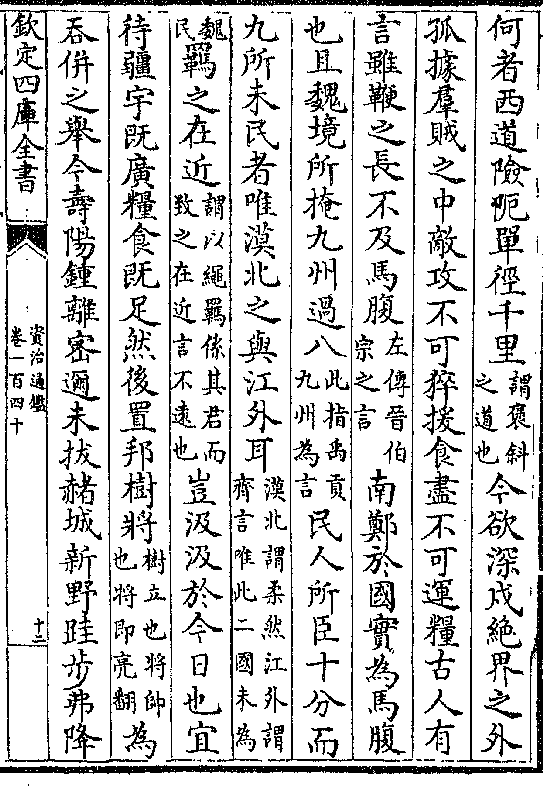 何者西道險阨單徑千里謂褒斜之道也今欲深戍絶界之外
孤據羣賊之中敵攻不可猝援食盡不可運糧古人有
言雖鞭之長不及馬腹左傳晉伯宗之言南鄭於國實為馬腹
也且魏境所掩九州過八此指禹貢九州為言民人所臣十分而
九所未民者唯漠北之與江外耳漠北謂柔然江外謂齊言唯此二國未為
魏民羈之在近謂以繩羈係其君而致之在近言不遠也豈汲汲於今日也宜
待疆宇既廣糧食既足然後置邦樹將樹立也將帥也將即亮翻為
吞併之舉今壽陽鍾離密邇未拔赭城新野跬步弗降
欽定四庫全書
資治通鑑
卷一百四十
十二